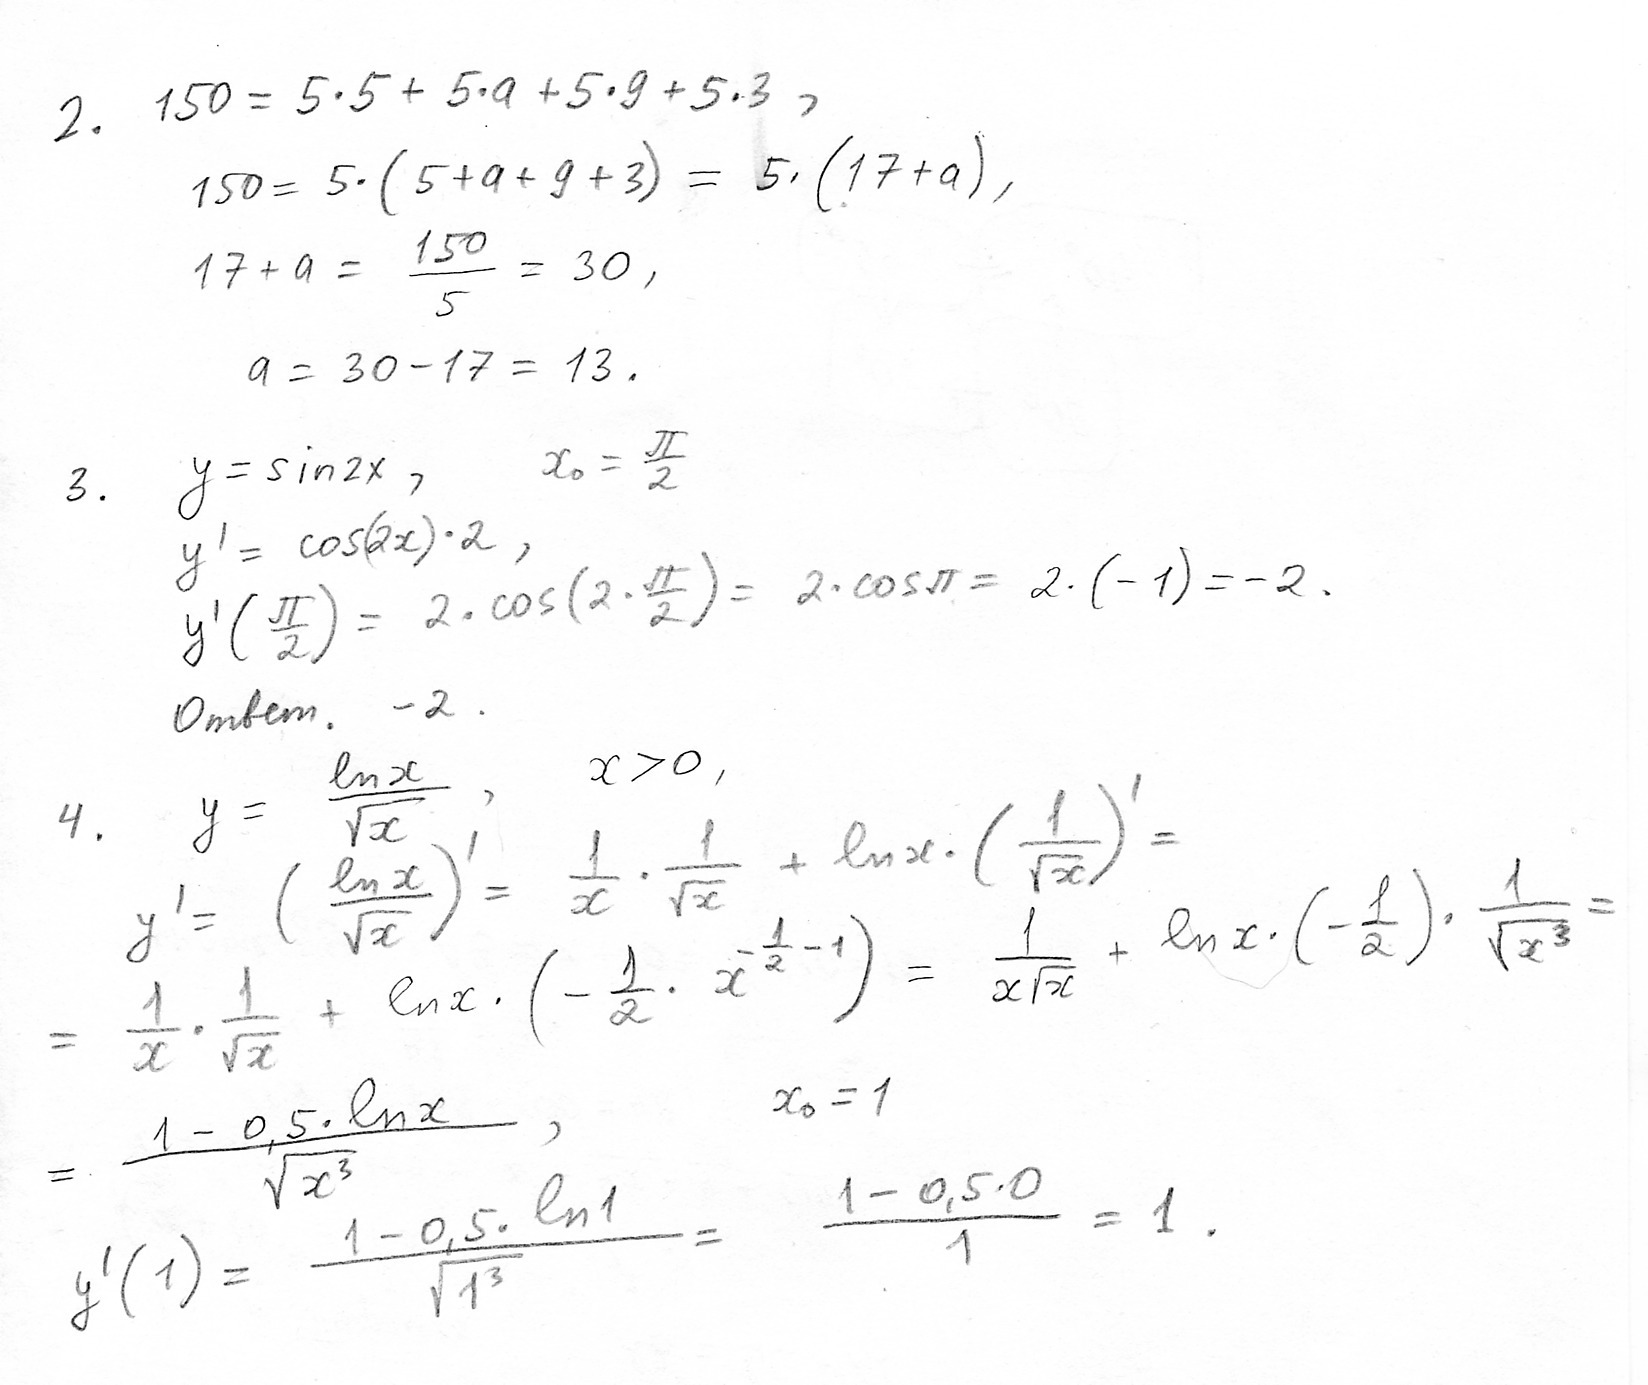 2. 150 = 5·5 + 5·a + 5·9 + 5·3,
150 = 5·(5+a+9+3) = 5·(17+a),
17+a = 150/5 = 30,
a = 30-17 = 13.
3. y = sin2x, x₀ = π/2
y' = cos(2x)·2,
y'(π/2) = 2·cos(2·π/2) = 2·cosπ = 2·(-1) = -2.
Ответ. -2.
4. y = lnx/√x, x>0,
y' = (lnx/√x)' = 1/x · 1/√x + lnx·(1/√x)' =
= 1/x · 1/√x + lnx·(-1/2 · x^(-1/2 -1)) = 1/(x√x) + lnx·(-1/2)· 1/√(x³) =
= (1-0,5·lnx)/√(x³), x₀ = 1
y'(1) = (1-0,5·ln1)/√(1³) = (1-0,5·0)/1 = 1.